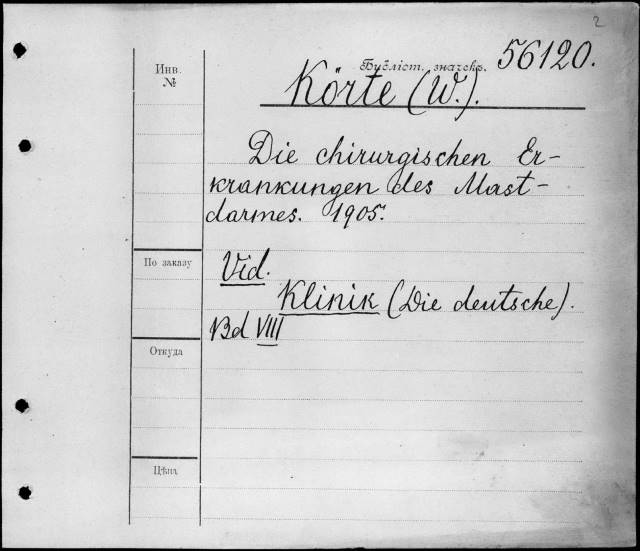 2
Инв.
№
Бубліот. значекъ. 56120.
Körte (W.).
Die chirurgischen Er-
krankungen des Mast-
darmes. 1905.
По заказу
Vid.
Klinik (Die deutsche).
Bd VIII
Откуда
Цѣна